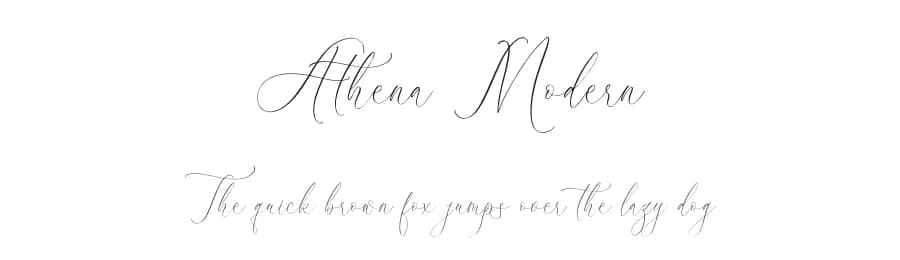 Athena Modern
The quick brown fox jumps over the lazy dog